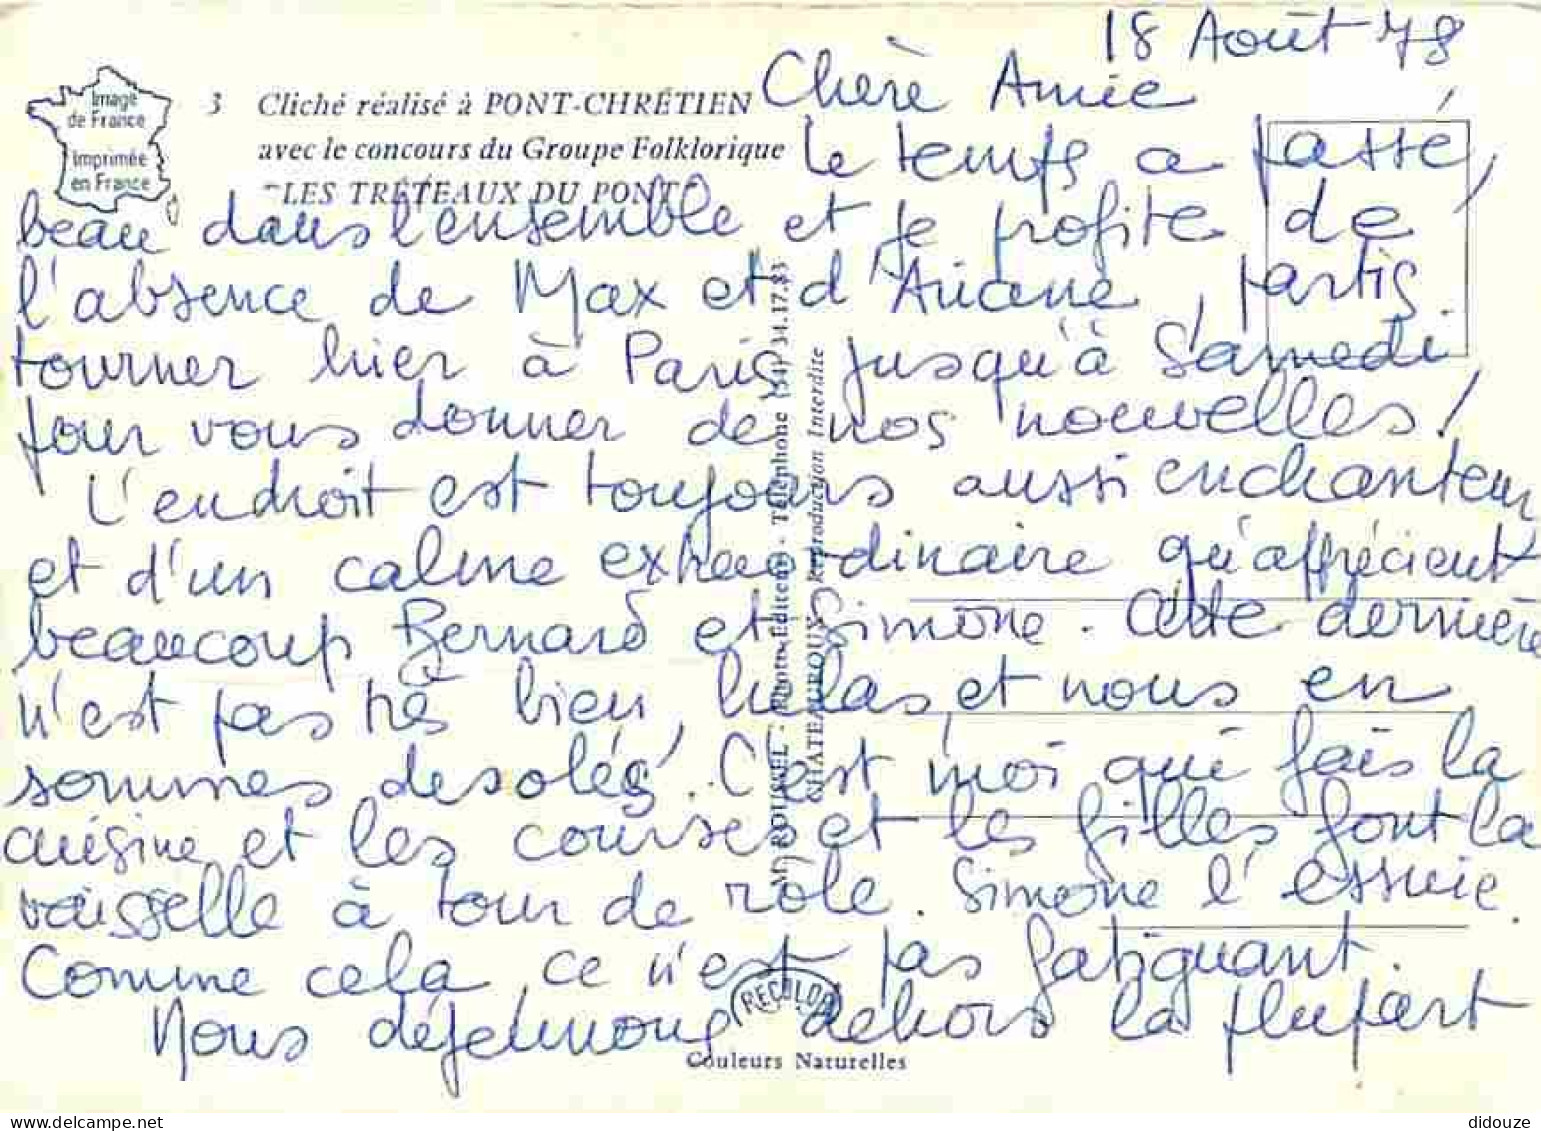 18 Août 78
Chère Amie
Image
de France
Imprimée
en France
3 Cliché réalisé à PONT-CHRÉTIEN
avec le concours du Groupe Folklorique
"LES TRÉTEAUX DU PONT"
Le temps a passé,
beau dans l'ensemble et je profite de
l'absence de Max et d'Ariane, partis
tourner hier à Paris jusqu'à Samedi
pour vous donner de nos nouvelles !
L'endroit est toujours aussi enchanteur
et d'un calme extraordinaire qu'apprécient
beaucoup Bernard et Simone. Cette dernière
n'est pas très bien, hélas, et nous en
sommes desolés. C'est moi qui fais la
cuisine et les courses et les filles font la
vaisselle à tour de rôle. Simone l'essuie.
Comme cela, ce n'est pas fatiguant.
Nous déjeunons dehors la plupart
Photo-Éditeur - Téléphone (54) 34.17.33
CHATEAUROUX - Reproduction Interdite
RECOLOR
Couleurs Naturelles
didouze